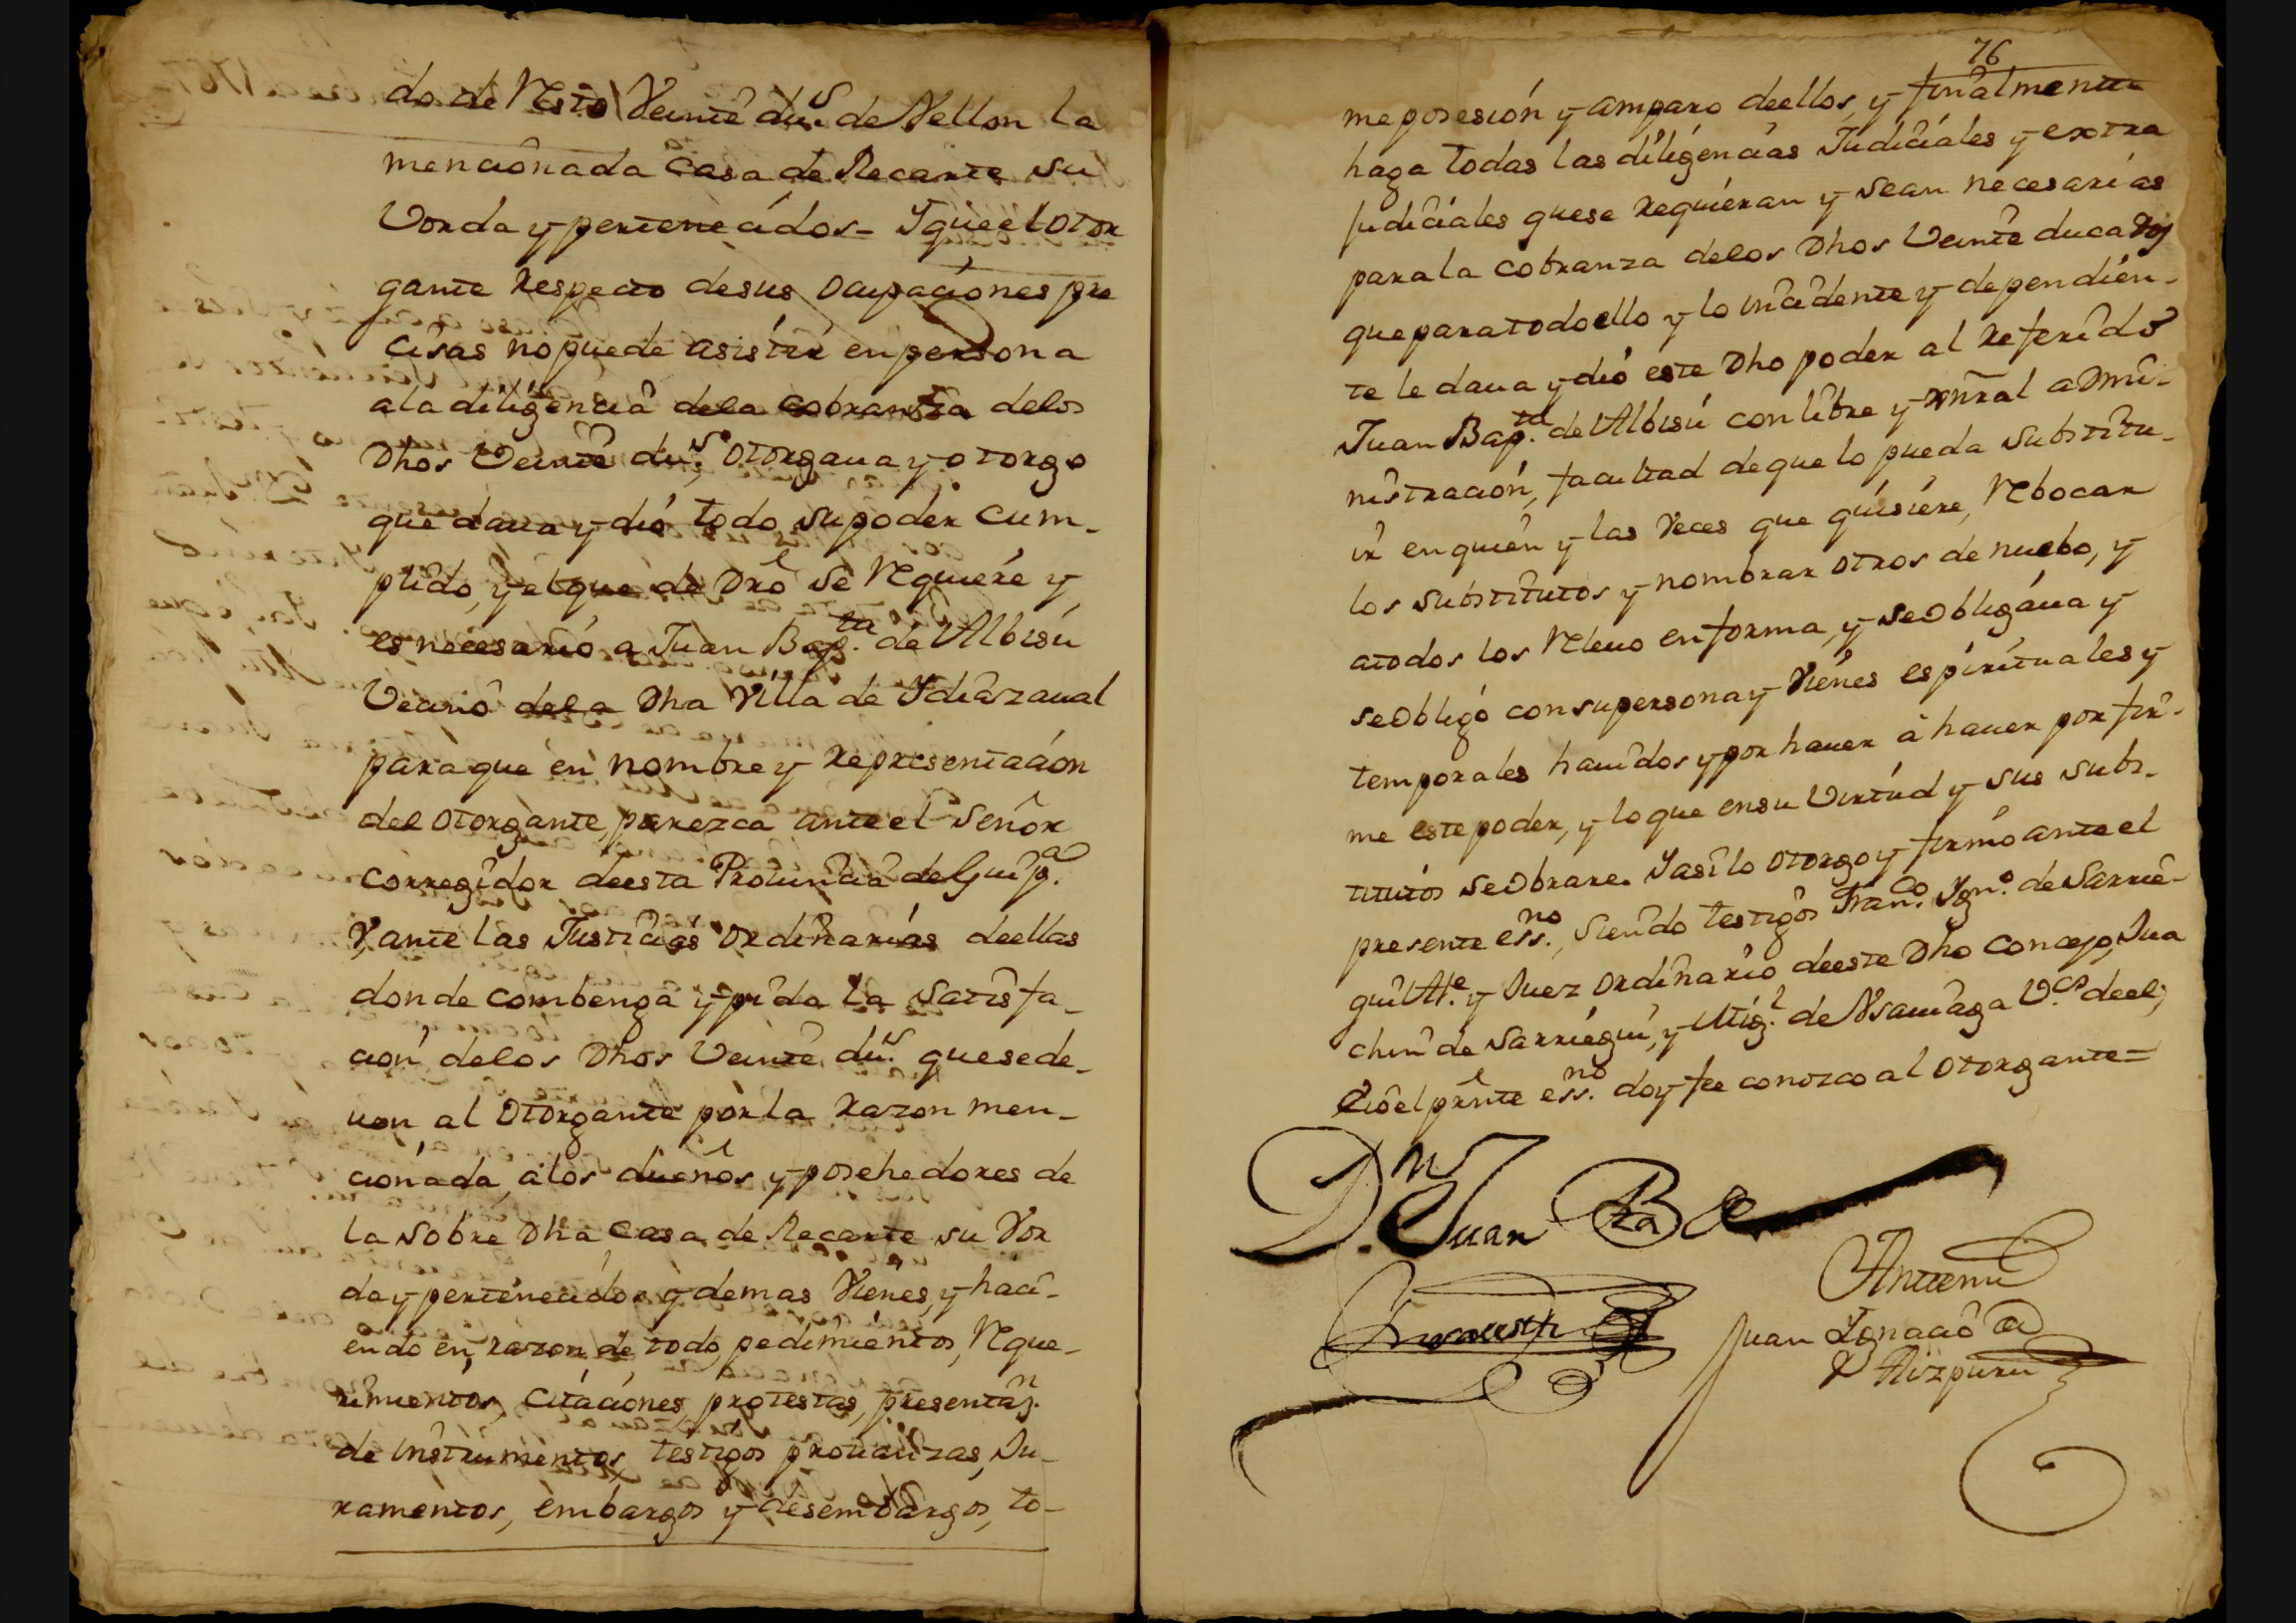 do de Resto Veinte du.s de Vellon la
mencionada Casa de Recarte su
Vorda y pertenecidos - Y que el otor
gante respecto de sus ocupaciones pre
cisas no puede asistir en persona
a la diligencia de la cobranza de los
Dhos Veinte du.s otorgaua y otorgo
que daua y dió todo su poder cum-
plido, y el que de Dro se Requiere y
es necesario a Juan Bap.ta de Albisu
Vecino de la Dha Villa de Ydiazaual
para que en nombre y representacion
del otorgante, parezca ante el Señor
Corregidor de esta Prouincia de Guip.a
Y, ante las Justicias ordinarias de ellas
donde combenga y pida la satisfa-
cion de los Dhos Veinte du.s que se de-
uen al otorgante por la razon men-
cionada, a los dueños y posehedores de
la sobre Dha Casa de Recarte su Vor
da y pertenecidos y demas Vienes, y haci-
endo en razon de todo, pedimientos, Reque-
rimientos, citaciones, protestas, presentaz.n
de instrumentos, testigos prouanzas, Ju-
ramentos, embargos y desembargos, to-
76
me posesión y amparo de ellos, y finalmente
haga todas las diligencias Judiciales y extra
judiciales que se requieran y sean necesarias
para la cobranza de los Dhos Veinte ducados
que para todo ello y lo incidente y dependien-
te le daua y dió este Dho poder al referido
Juan Bap.ta de Albisu con libre y admi-
nistración, facultad de que lo pueda substitu-
ir en quien y las Veces que quisiere, Rebocar
los substitutos y nombrar otros de nuebo, y
a todos los Releuo en forma, y se obligaua y
se obligó con su persona y Vienes espirituales y
temporales hauidos y por hauer à hauer por fir-
me este poder, y lo que en su Virtud y sus subs-
titutos se obrare. Y asi lo otorgo y firmó ante el
presente ess.no, siendo testigos Fran.co Ygn.o de Sarrie-
gui Al.e y Juez ordinario de este Dho Concejo, Jua
chin de Sarriegui, y Mig.l de V.os de el;
el prnte ess.no doy fee conozco al otorgante =
D.n Juan Bta
Antemi
Juan Ygnacio
Aizpuru